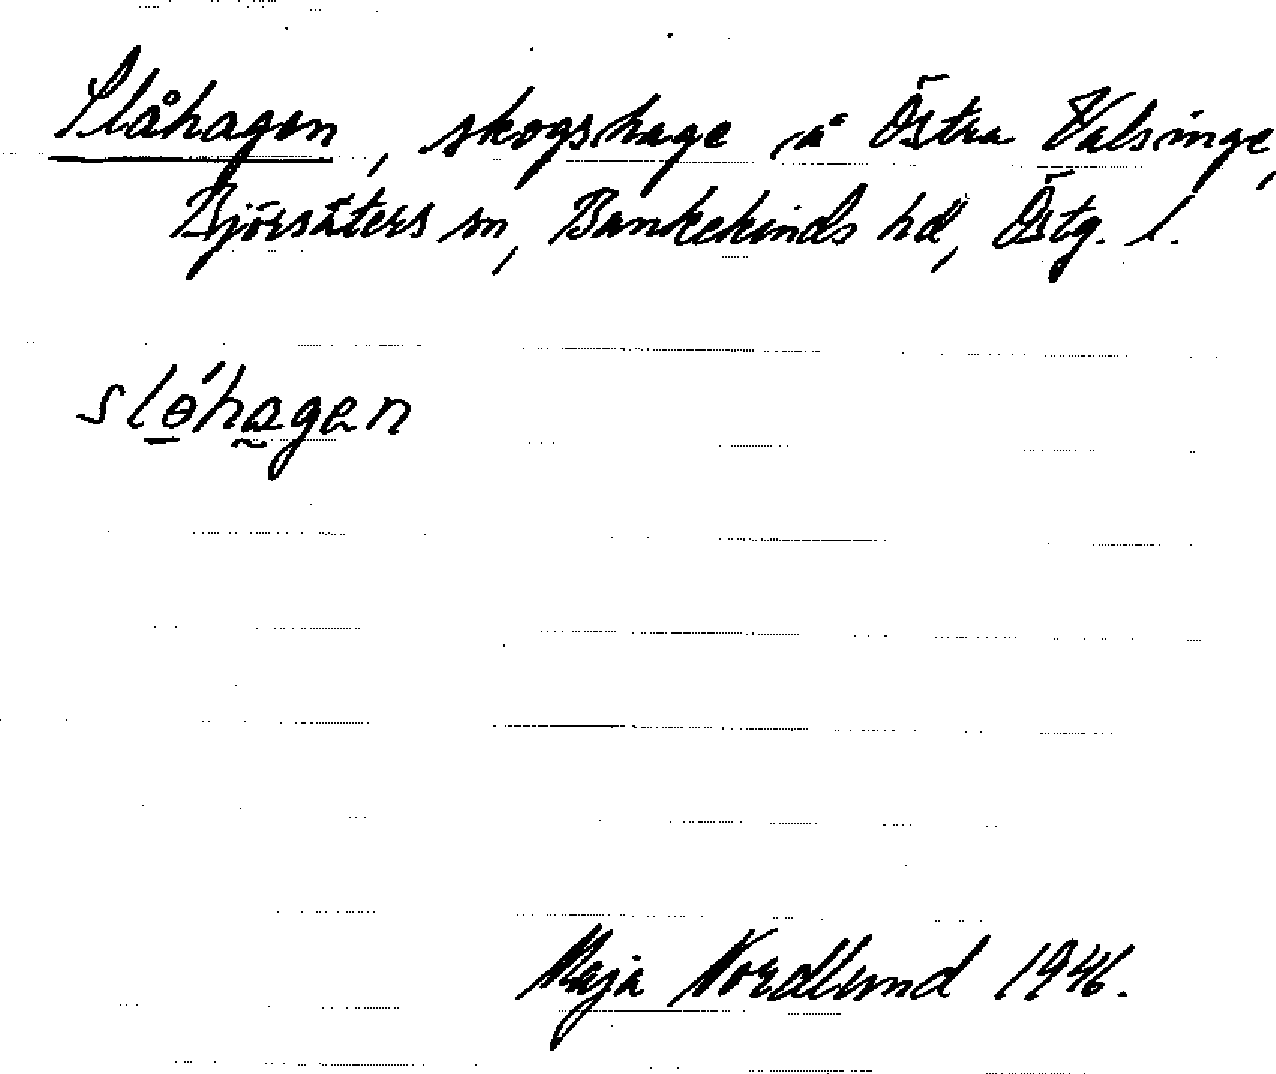 Slåhagen, skogshage å Östra Valsinge,
Björsäters sn, Bankekinds hd, Östg. l.
slɵ́hagen
Maja Nordlund 1946.